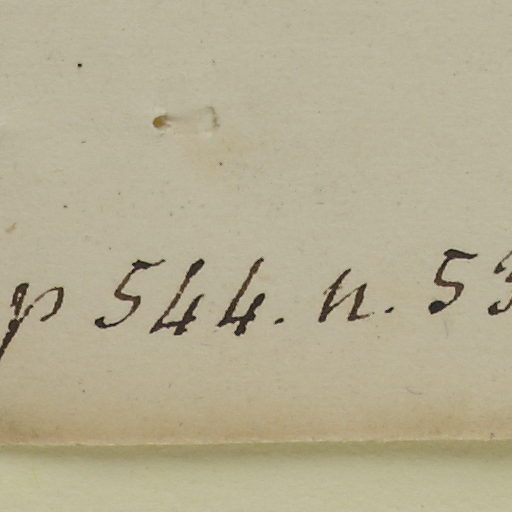 p 544. n. 53